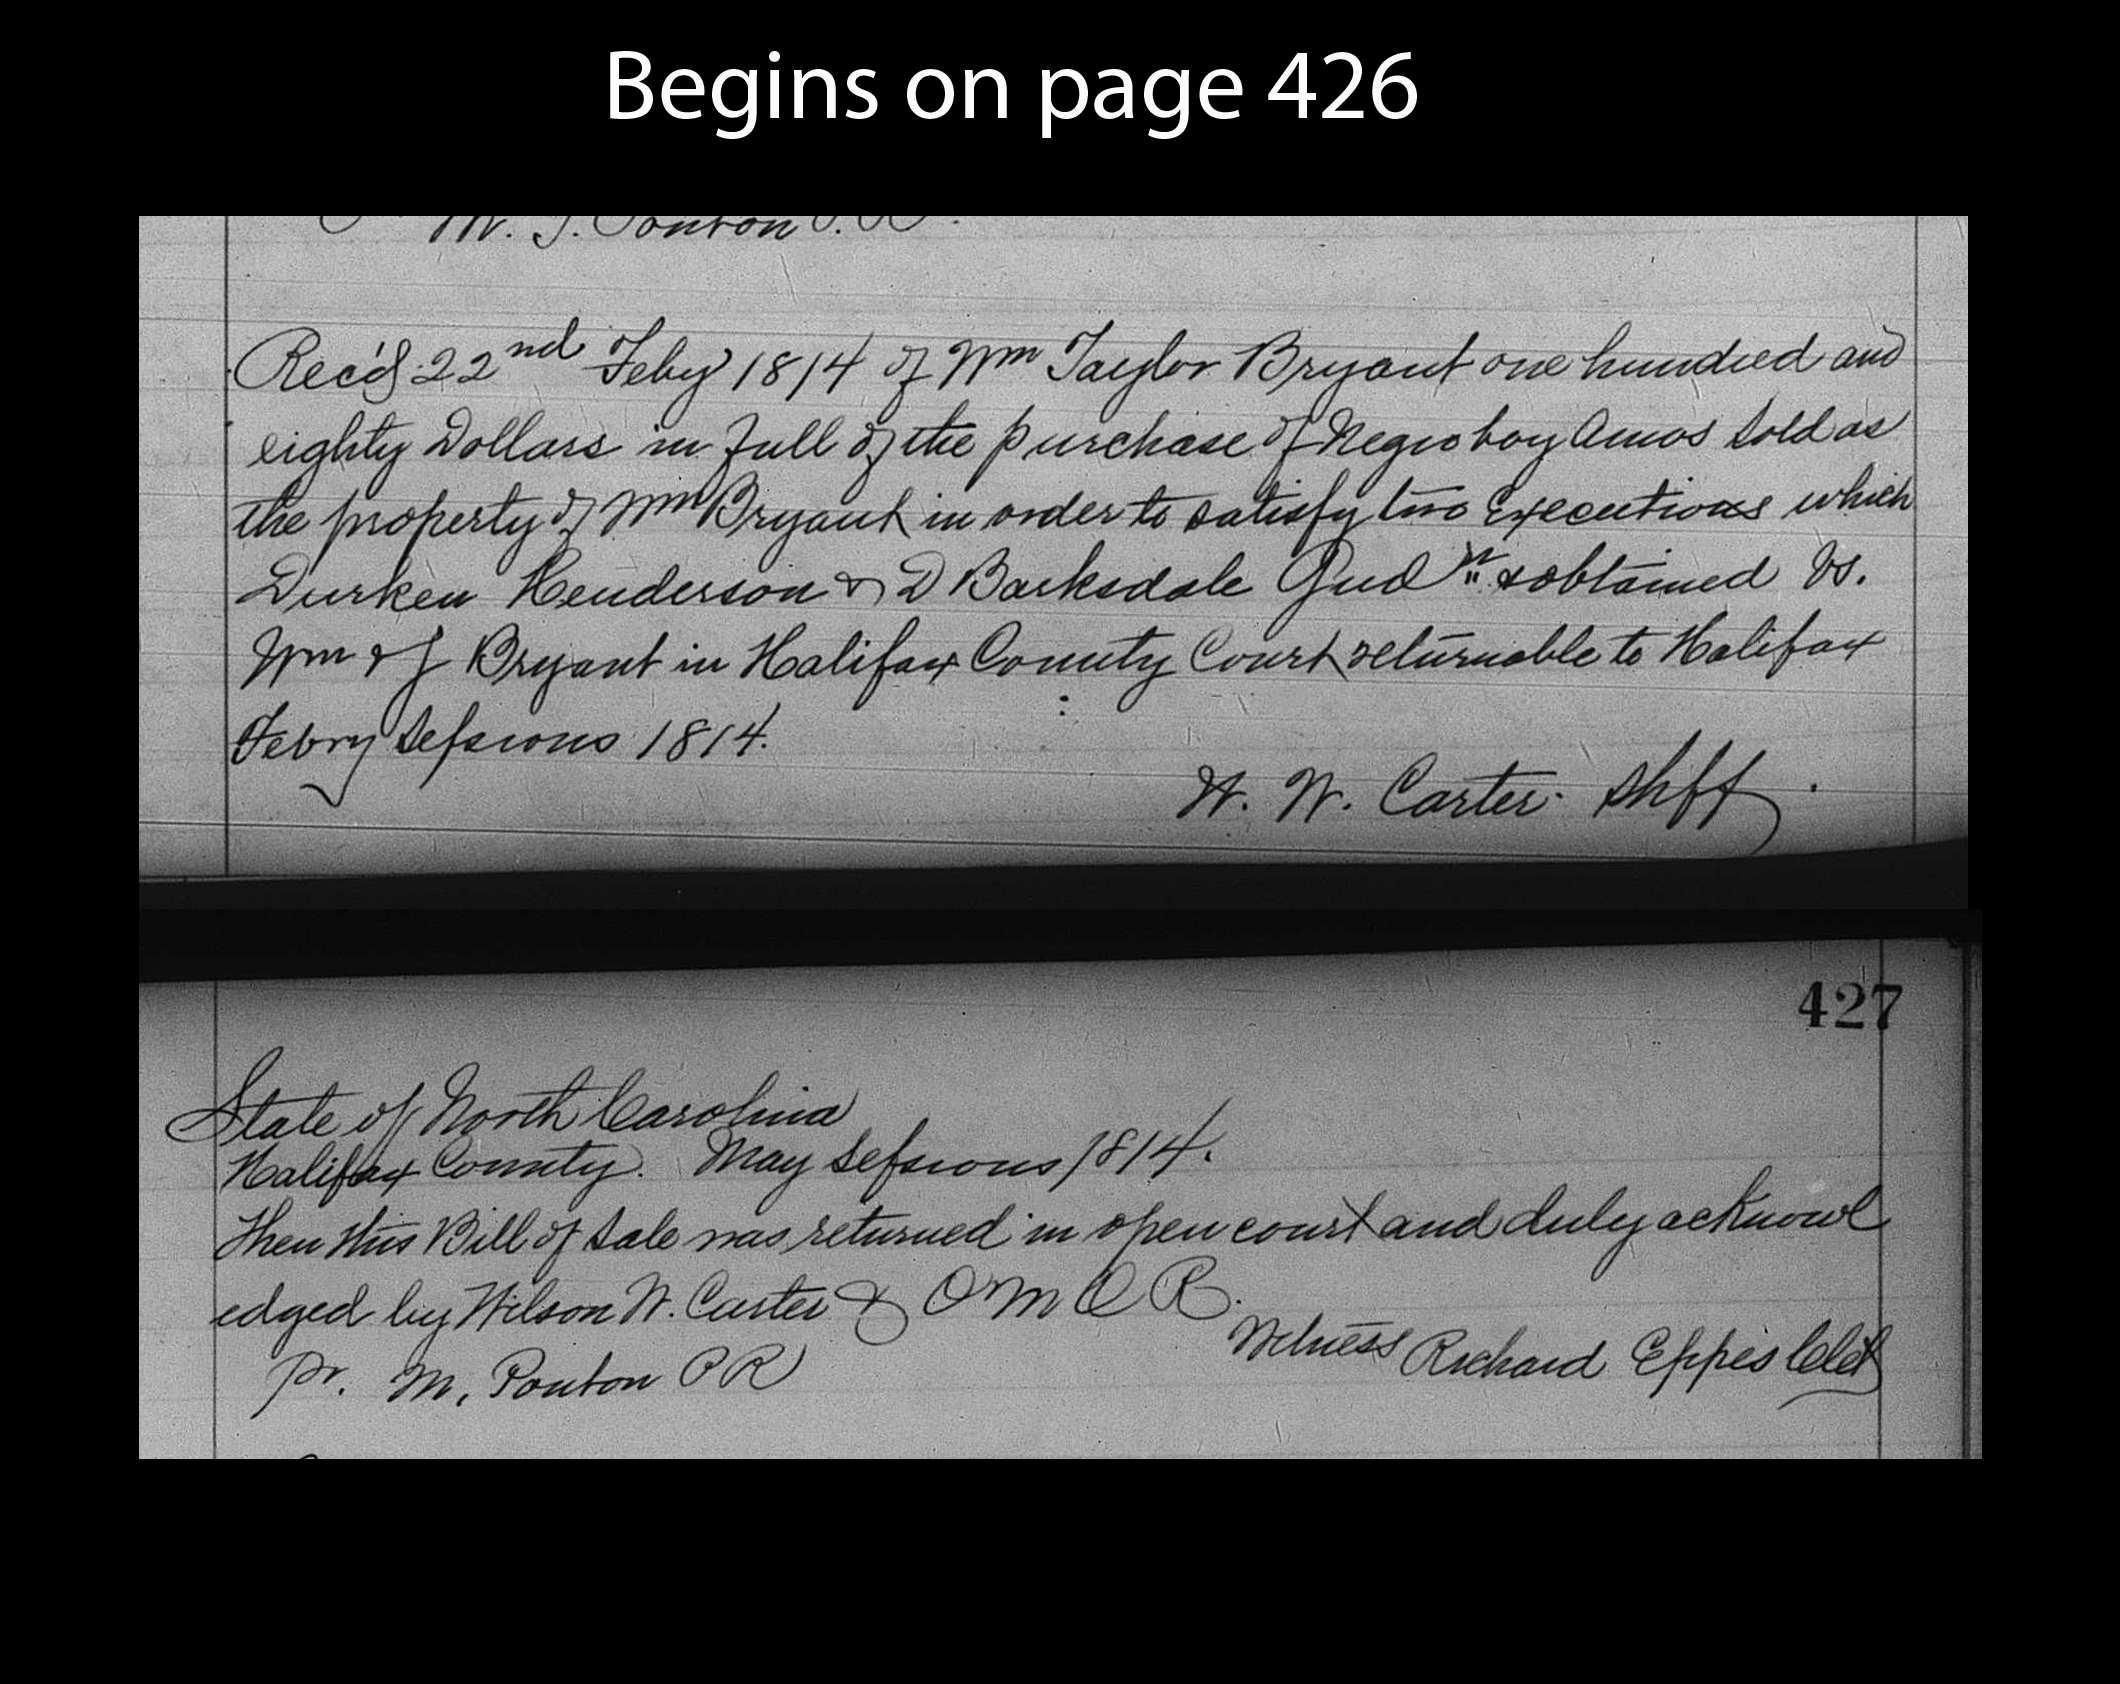 Begins on page 426
Rec'd 22nd Feby 1814 of Wm Taylor Bryant one hundred and
eighty Dollars in full of the purchase of Negro boy Amos sold as
the property of Wm Bryant in order to satisfy two Executions which
Durken Henderson & D Barksdale Gud obtained Vs.
Wm & J Bryant in Halifax County Court returnable to Halifax
Febry Sessions 1814.
W. W. Carter. Shff
427
State of North Carolina
Halifax County. May Sessions 1814.
Then this Bill of Sale was returned in open court and duly acknowl
edged by Wilson W. Carter & O M O R.
Witness Richard Eppes Clk
Pr. M. Ponton P R